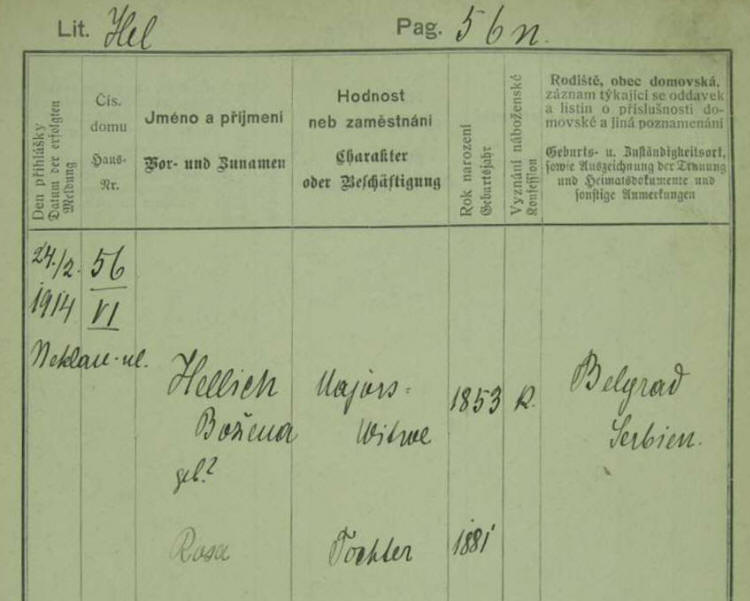 Lit. Hel
Pag. 56n.
Den přihlášky
Datum der erfolgten
Meldung
Čís.
domu
Haus-
Nr.
Jméno a příjmení
Vor- und Zunamen
Hodnost
neb zaměstnání
Charakter
oder Beschäftigung
Rok narození
Geburtsjahr
Vyznání náboženské
Konfession
Rodiště, obec domovská,
záznam týkající se oddavek
a listin o příslušnosti do-
movské a jiná poznamenání
Geburts- u. Zuständigkeitsort,
sowie Auszeichnung der Trauung
und Heimatsdokumente und
sonstige Anmerkungen
24./2. 56
1914 VI
Neklan-ul.
Hellich Majors- 1853 K. Belgrad
Božena Witwe Serbien.
geb?
Rosa Tochter 1881